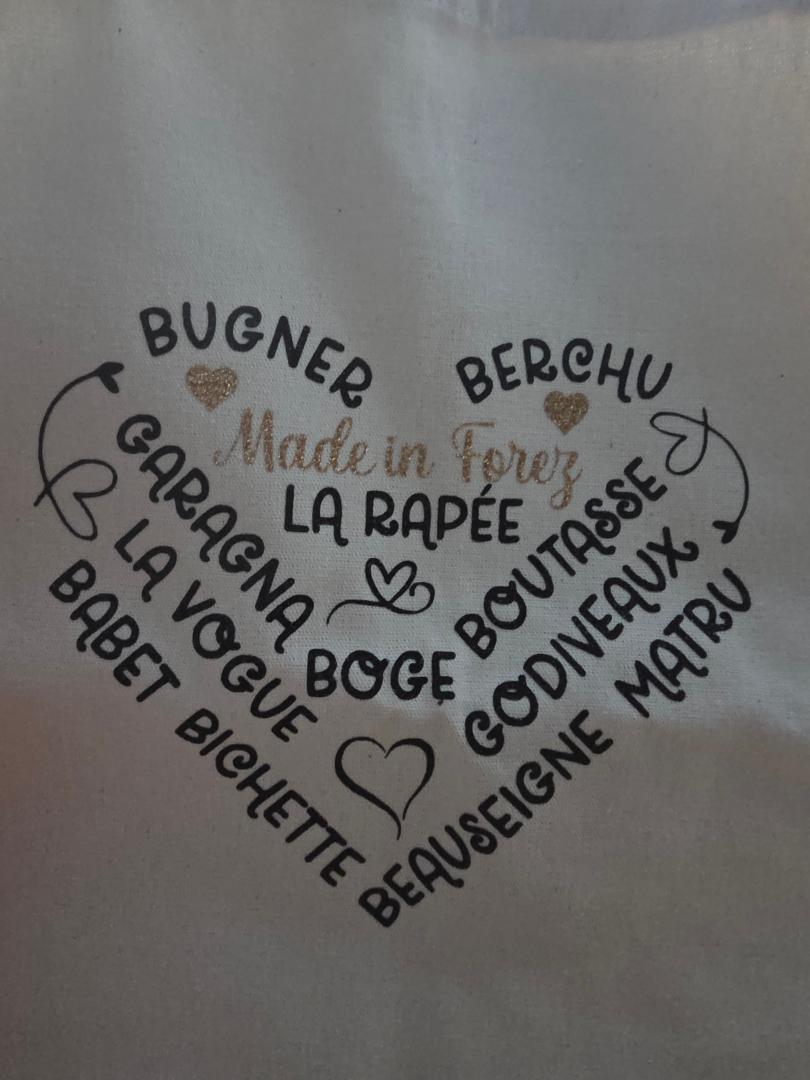 BUGNER
BERCHU
Made in Forez
LA RAPÉE
GARAGNA
BOGE
BOUTASSE
LA VOGUE
GODIVEAUX
BABET BICHETTE
BEAUSEIGNE MATRU